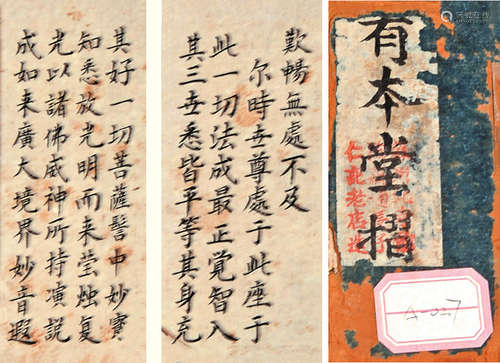 其好一切菩薩髻中妙寶
知悉放光明而来莹烛复
光以諸佛威神所持演説
成如来廣大境界妙音遐
歎暢無處不及
尔時世尊處于此座于
此一切法成最正覚智入
其三世悉皆平等其身充
有本堂摺
仁記老店造
A-027